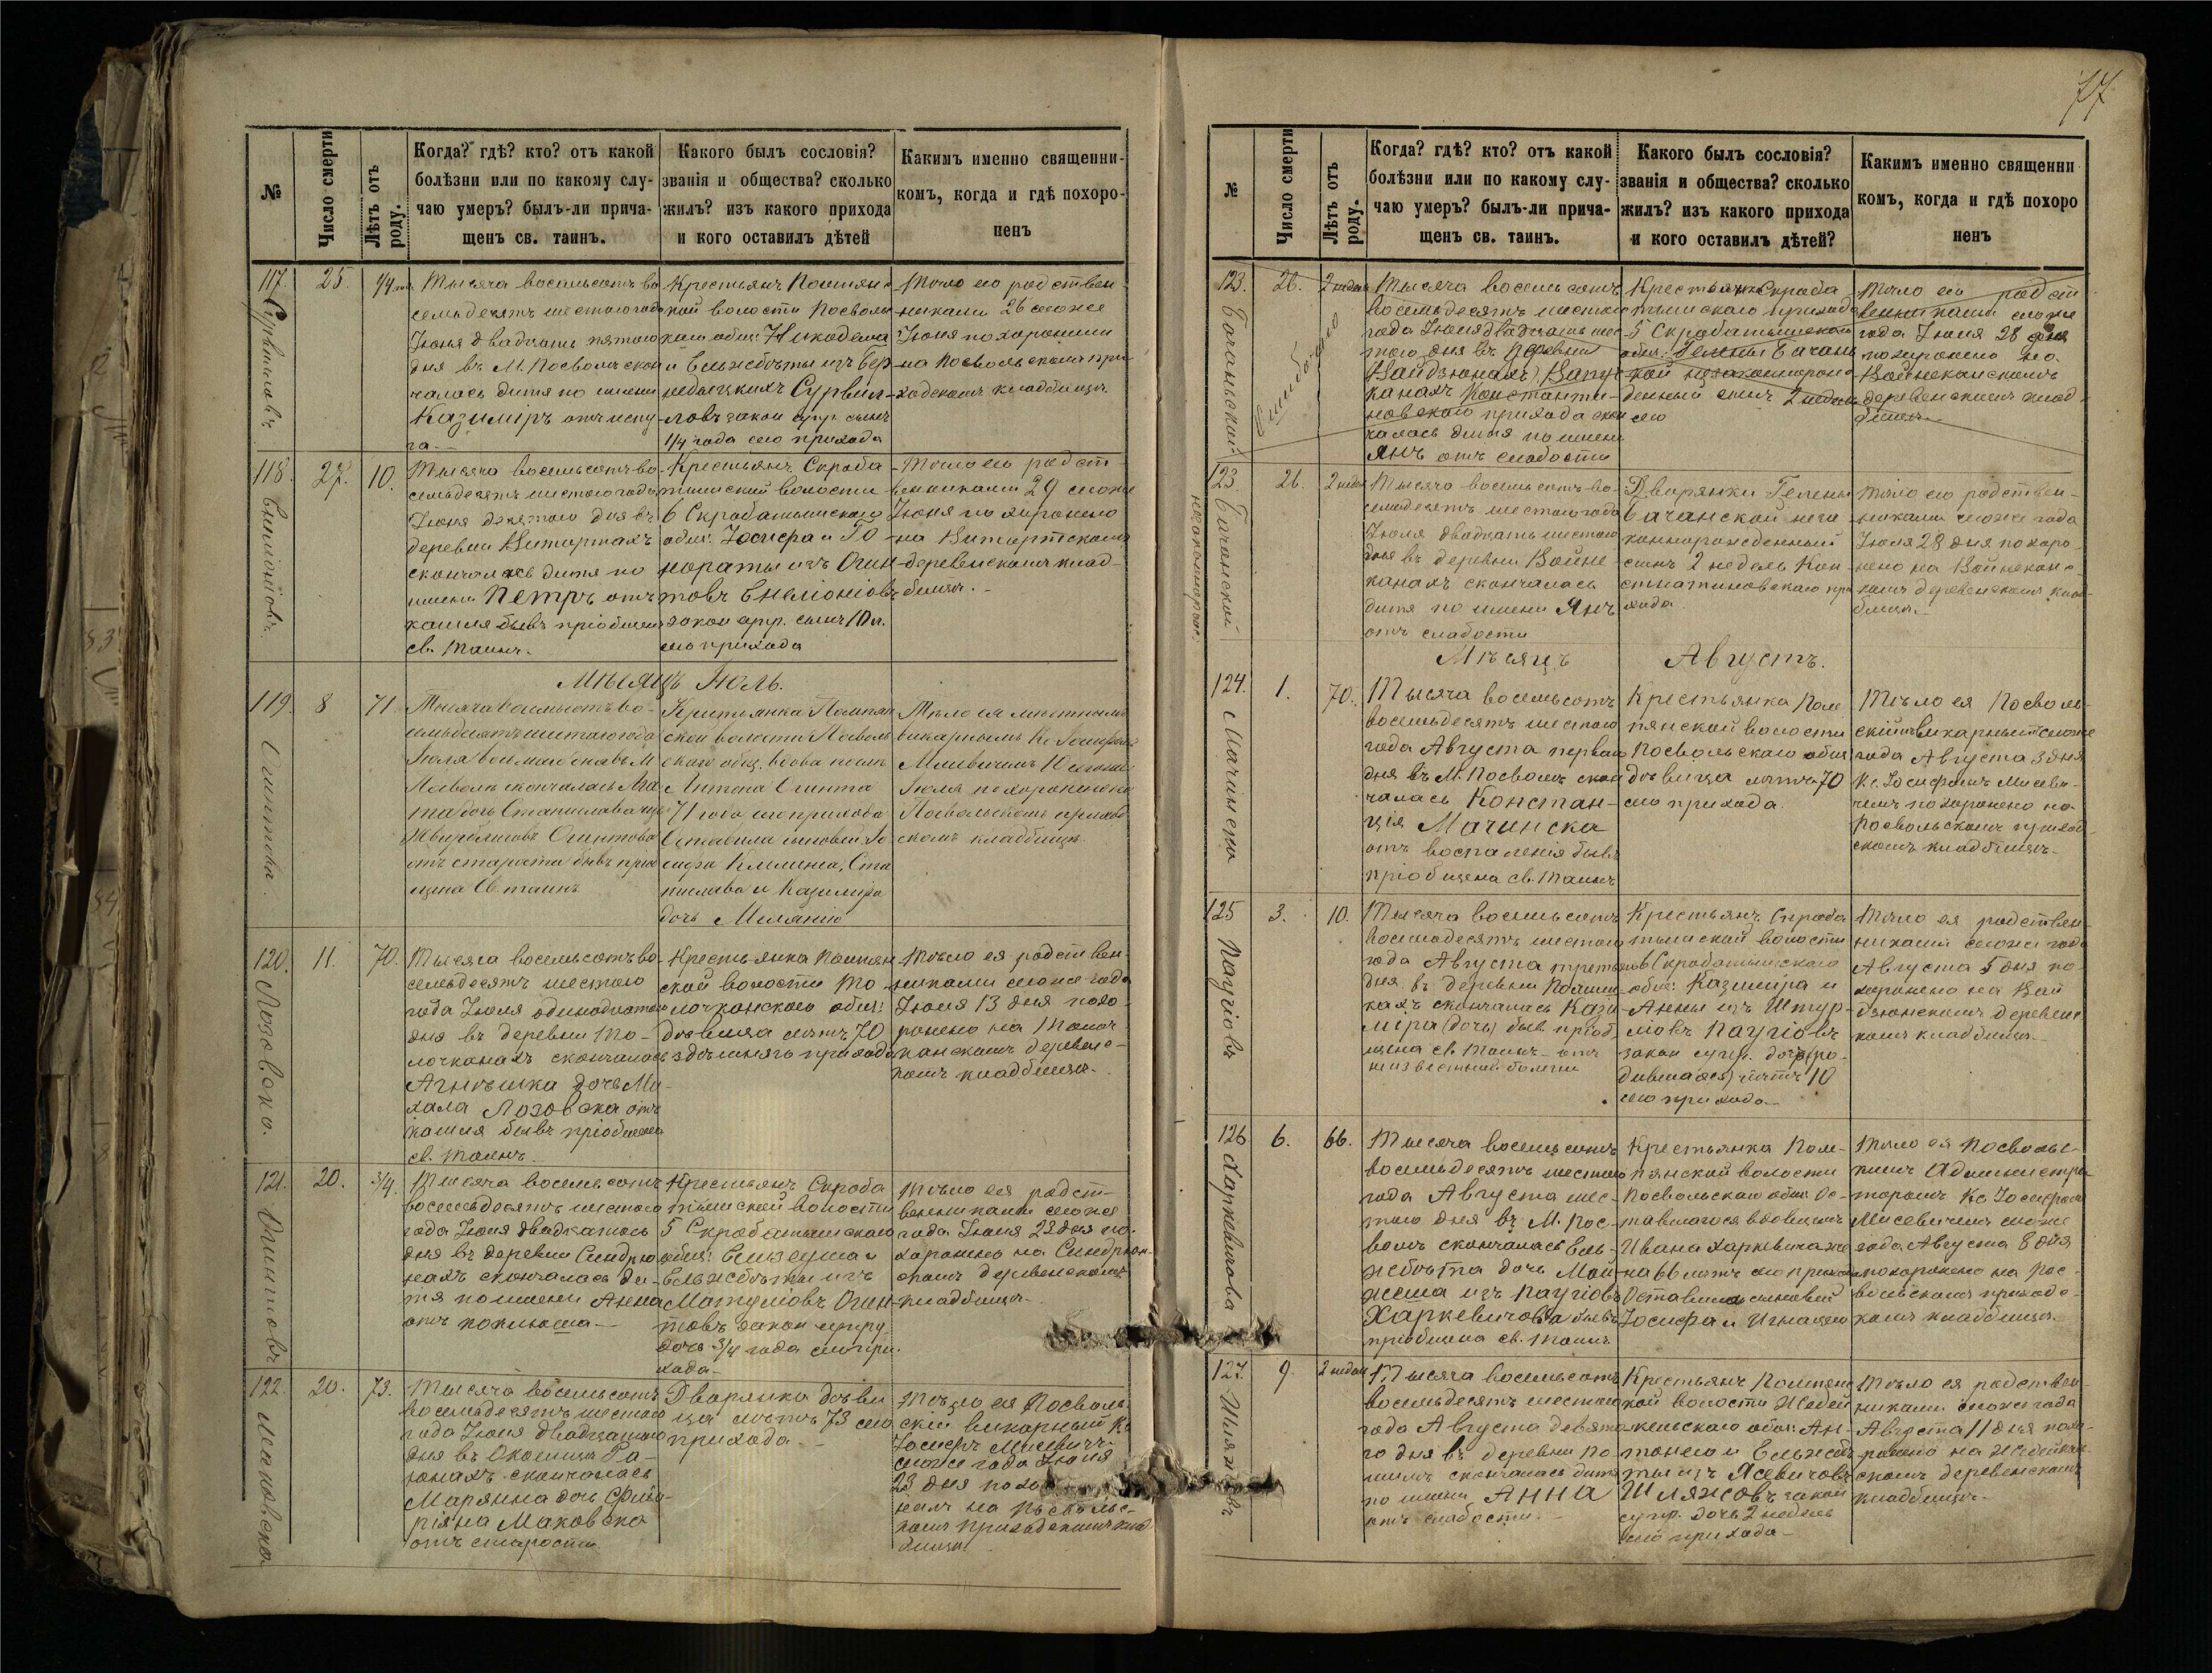 77
№
Число смерти
Лѣтъ отъ роду.
Когда? гдѣ? кто? отъ какой
болѣзни или по какому слу-
чаю умеръ? былъ-ли прича-
щенъ св. таинъ.
Какого былъ сословія?
званія и общества? сколько
жилъ? изъ какого прихода
и кого оставилъ дѣтей
Какимъ именно священни-
комъ, когда и гдѣ похоро-
ненъ
117.
25.
1/4
Тысяча восемьсотъ во-
семьдесятъ шестого года
Іюня двадцать пятого
дня въ М. Посволѣ скон
чалось дитя по имени
Казиміръ отъ
Крестьянъ
кой волости Посволь
каго общ: Никодема
и Ельжбѣты изъ Бер
закон. супр. сынъ
1/4 года сего прихода
Тѣло его родствен-
никами 26 сего же
Іюня похоронено
на Посвольскомъ при
ходскомъ кладбищѣ
118.
27.
10.
Тысяча восемьсотъ во-
семьдесятъ шестого года
Іюня дня въ
деревни
скончалось дитя по
имени Петръ отъ
кашля бывъ пріобщенъ
св. Таинъ.
Крестьянъ Скроба
тишской волости
6 Скробатишскаго
общ: Іосифа и Го
нораты изъ Огин
товъ
закон. супр. сынъ 10 л.
сего прихода
Тѣло его родст
венниками 29 сего же
Іюня похоронено
на
деревенскомъ клад
бищѣ.
Мѣсяцъ Іюль.
119.
8
71.
Огинтова.
Тысяча восемьсотъ во-
семьдесятъ шестого года
Іюля восьмого дня въ М
Посволѣ скончалась Ага
та дочь Станислава изъ
Огинтова
отъ старости бывъ пріоб
щена Св таинъ
Крестьянка Помпян
ской волости Посволь
скаго общ. вдова послѣ
Антона Огинта
71 года сего прихода
Оставила сыновей Іо
сифа Клименса, Ста
нислава и Казиміра
дочь Меланію
Тѣло ея мѣстнымъ
викарнымъ Кс Іосифомъ
Мисевичемъ 10 сего же
Іюля похоронено на
Посвольскомъ приход
скомъ кладбищѣ.
120.
11.
70.
Лозовско.
Тысяча восемьсотъ во-
семьдесятъ шестого
года Іюля одинадцатого
дня въ деревни То-
лочканахъ скончалась
Агнѣшка дочь Ми-
хала Лозовска отъ
кашля бывъ пріобщена
св. Таинъ.
Крестьянка Помпян
ской волости То-
лочканскаго общ:
дѣвица лѣтъ 70
здѣшняго прихода
Тѣло ея родствен
никами сего же года
Іюля 13 дня похо-
ронено на Толоч
канскомъ деревенс-
комъ кладбищѣ.
121.
20.
3/4.
Огинтовъ
Тысяча восемьсотъ
восемьдесятъ шестого
года Іюля двадцатого
дня въ деревни Синдрю
нахъ скончалось ди-
тя по имени Анна
отъ коклюша
Крестьянъ Скроба
тишской волости
5 Скробатишскаго
общ:
Ельжбѣты изъ
Матуліовъ Огин-
товъ закон супру
дочь 3/4 года сего при-
хода.
Тѣло ея родст-
венниками сего же
года Іюля 23 дня по-
хоронено на Синдрюн-
скомъ деревенскомъ
кладбищѣ
122.
20.
73.
Маковско
Тысяча восемьсотъ
восемьдесятъ шестого
года Іюля двадцатого
дня въ Околицѣ Ра-
юнахъ скончалась
Марянна дочь
Маковска
отъ старости
Дворянка дѣви
ца лѣтъ 73 сего
прихода.
Тѣло ея Посволь
скій викарный Кс
Іосифъ Мисевичъ
сего же года Іюля
23 дня похо
на Посвольс-
комъ приходскомъ клад
бищѣ
№
Число смерти
Лѣтъ отъ роду.
Когда? гдѣ? кто? отъ какой
болѣзни или по какому слу-
чаю умеръ? былъ-ли прича-
щенъ св. таинъ.
Какого былъ сословія?
званія и общества? сколько
жилъ? изъ какого прихода
и кого оставилъ дѣтей?
Какимъ именно священни
комъ, когда и гдѣ похоро
ненъ
123.
26.
2 недѣл
Ошибочно
Тысяча восемьсотъ
восемьдесятъ шестого
года Іюля двадцать шес
того дня въ деревни
Константи-
новскаго прихода скон
чалось дитя по имени
Янъ отъ слабости
Крестьянъ Скроба
тишскаго прихода
5 Скробатишской
общ: Гелены Бачан
ской незаконнорож
денный сынъ 2 недѣль
сего
Тѣло его родст
венниками сего же
года Іюля 28 дня
похоронено на
деревенскомъ клад
бищѣ
123.
26.
2 недѣл
Бачанскій
незаконнорож.
Тысяча восемьсотъ во-
семьдесятъ шестого года
Іюля двадцать шестого
дня въ деревни Войне-
канахъ скончалось
дитя по имени Янъ
отъ слабости
Дворянки Гелены
Бачанской неза
коннорожденный
сынъ 2 недѣль Кон-
стнатиновскаго при
хода.
Тѣло его родствен-
никами сего же года
Іюля 28 дня похоро-
нено на Войнеканс-
комъ деревенскомъ клад
бищѣ.
Мѣсяцъ Августъ.
124.
1.
70.
Тысяча восемьсотъ
восемьдесятъ шестого
года Августа перваго
дня въ М. Посволѣ скон
чалась Констан-
ція Мачинска
отъ воспаленія бывъ
пріобщена св. Таинъ
Крестьянка Пом
пянской волости
Посвольскаго общ:
дѣвица лѣтъ 70
сего прихода.
Тѣло ея Посволь-
скій викарный сего же
года Августа 3 дня
Кс. Іосифомъ Мисеви-
чемъ похоронено на
Посвольскомъ приход
скомъ кладбищѣ.
125
3.
10.
Паугіовъ
Тысяча восемьсотъ
восемьдесятъ шестого
года Августа третьяго
дня въ деревни
кахъ скончалась Кази
міра (дочь) бывъ пріоб-
щена св. Таинъ отъ
неизвестной болезни
Крестьянъ Скроба
тишской волости
6 Скробатишскаго
общ: Казиміра и
Анны изъ Штур-
мовъ Паугіовъ
закон супр. дочь (ро-
дившаяся) лѣтъ 10
сего прихода
Тѣло ея родствен-
никами сего же года
Августа 5 дня по-
хоронено на Вай
дзюнскомъ деревенс
комъ кладбищѣ.
126
6.
66.
Харкевичова
Тысяча восемьсотъ
восемьдесятъ шестого
года Августа шес-
того дня въ М. Пос-
волѣ скончалась Ель-
жбѣта дочь Мой-
жеша изъ Паугіовъ
Харкевичова бывъ
пріобщена св. Таинъ
Крестьянка Пом-
пянской волости
Посвольскаго общ: Ос-
тавшаяся вдовицей
Ивана Харкевича же
на 66 лѣтъ сего прихода
Оставила сыновей
Іосифа и Игнація
Тѣло ея Посволь-
кимъ Администра
торомъ Кс Іосифомъ
Мисевичемъ сего же
года Августа 8 дня
похоронено на Пос-
вольскомъ приходс-
комъ кладбищѣ.
127.
9.
2 недѣл
Шляжовъ
Тысяча восемьсотъ
восемьдесятъ шестого
года Августа девята
го дня въ деревни
скончалась дитя
по имени Анна
отъ слабости.
Крестьянъ Помпянс
кой волости
общ: Ан-
тонего и Ельжбѣ
ты изъ Ясевичовъ
Шляжовъ закон
супр. дочь 2 недѣль
сего прихода
Тѣло ея родствен-
никами сего же года
Августа 11 дня похо-
ронено на
скомъ деревенскомъ
кладбищѣ.